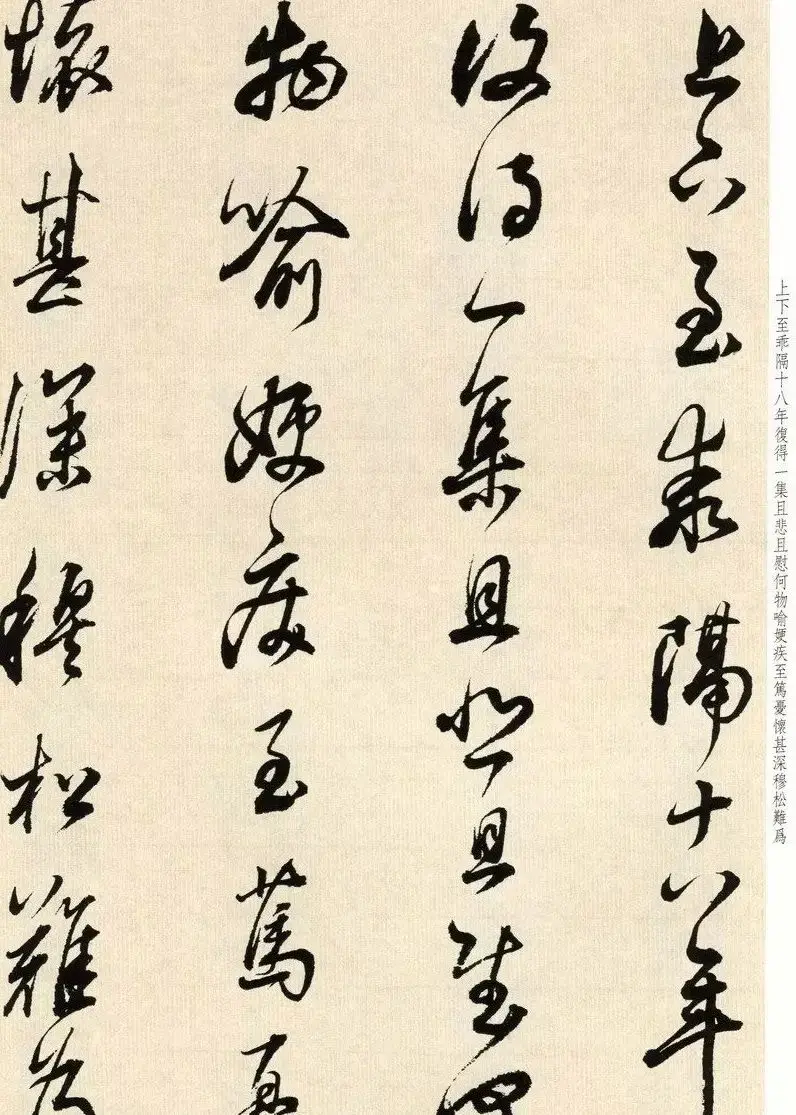 上下至乖隔十八年復得一集且悲且慰何物喻㛐疾至篤憂懷甚深穆松難爲
上下至乖隔十八年
復得一集且悲且慰何
物喻㛐疾至篤憂
懷甚深穆松難爲